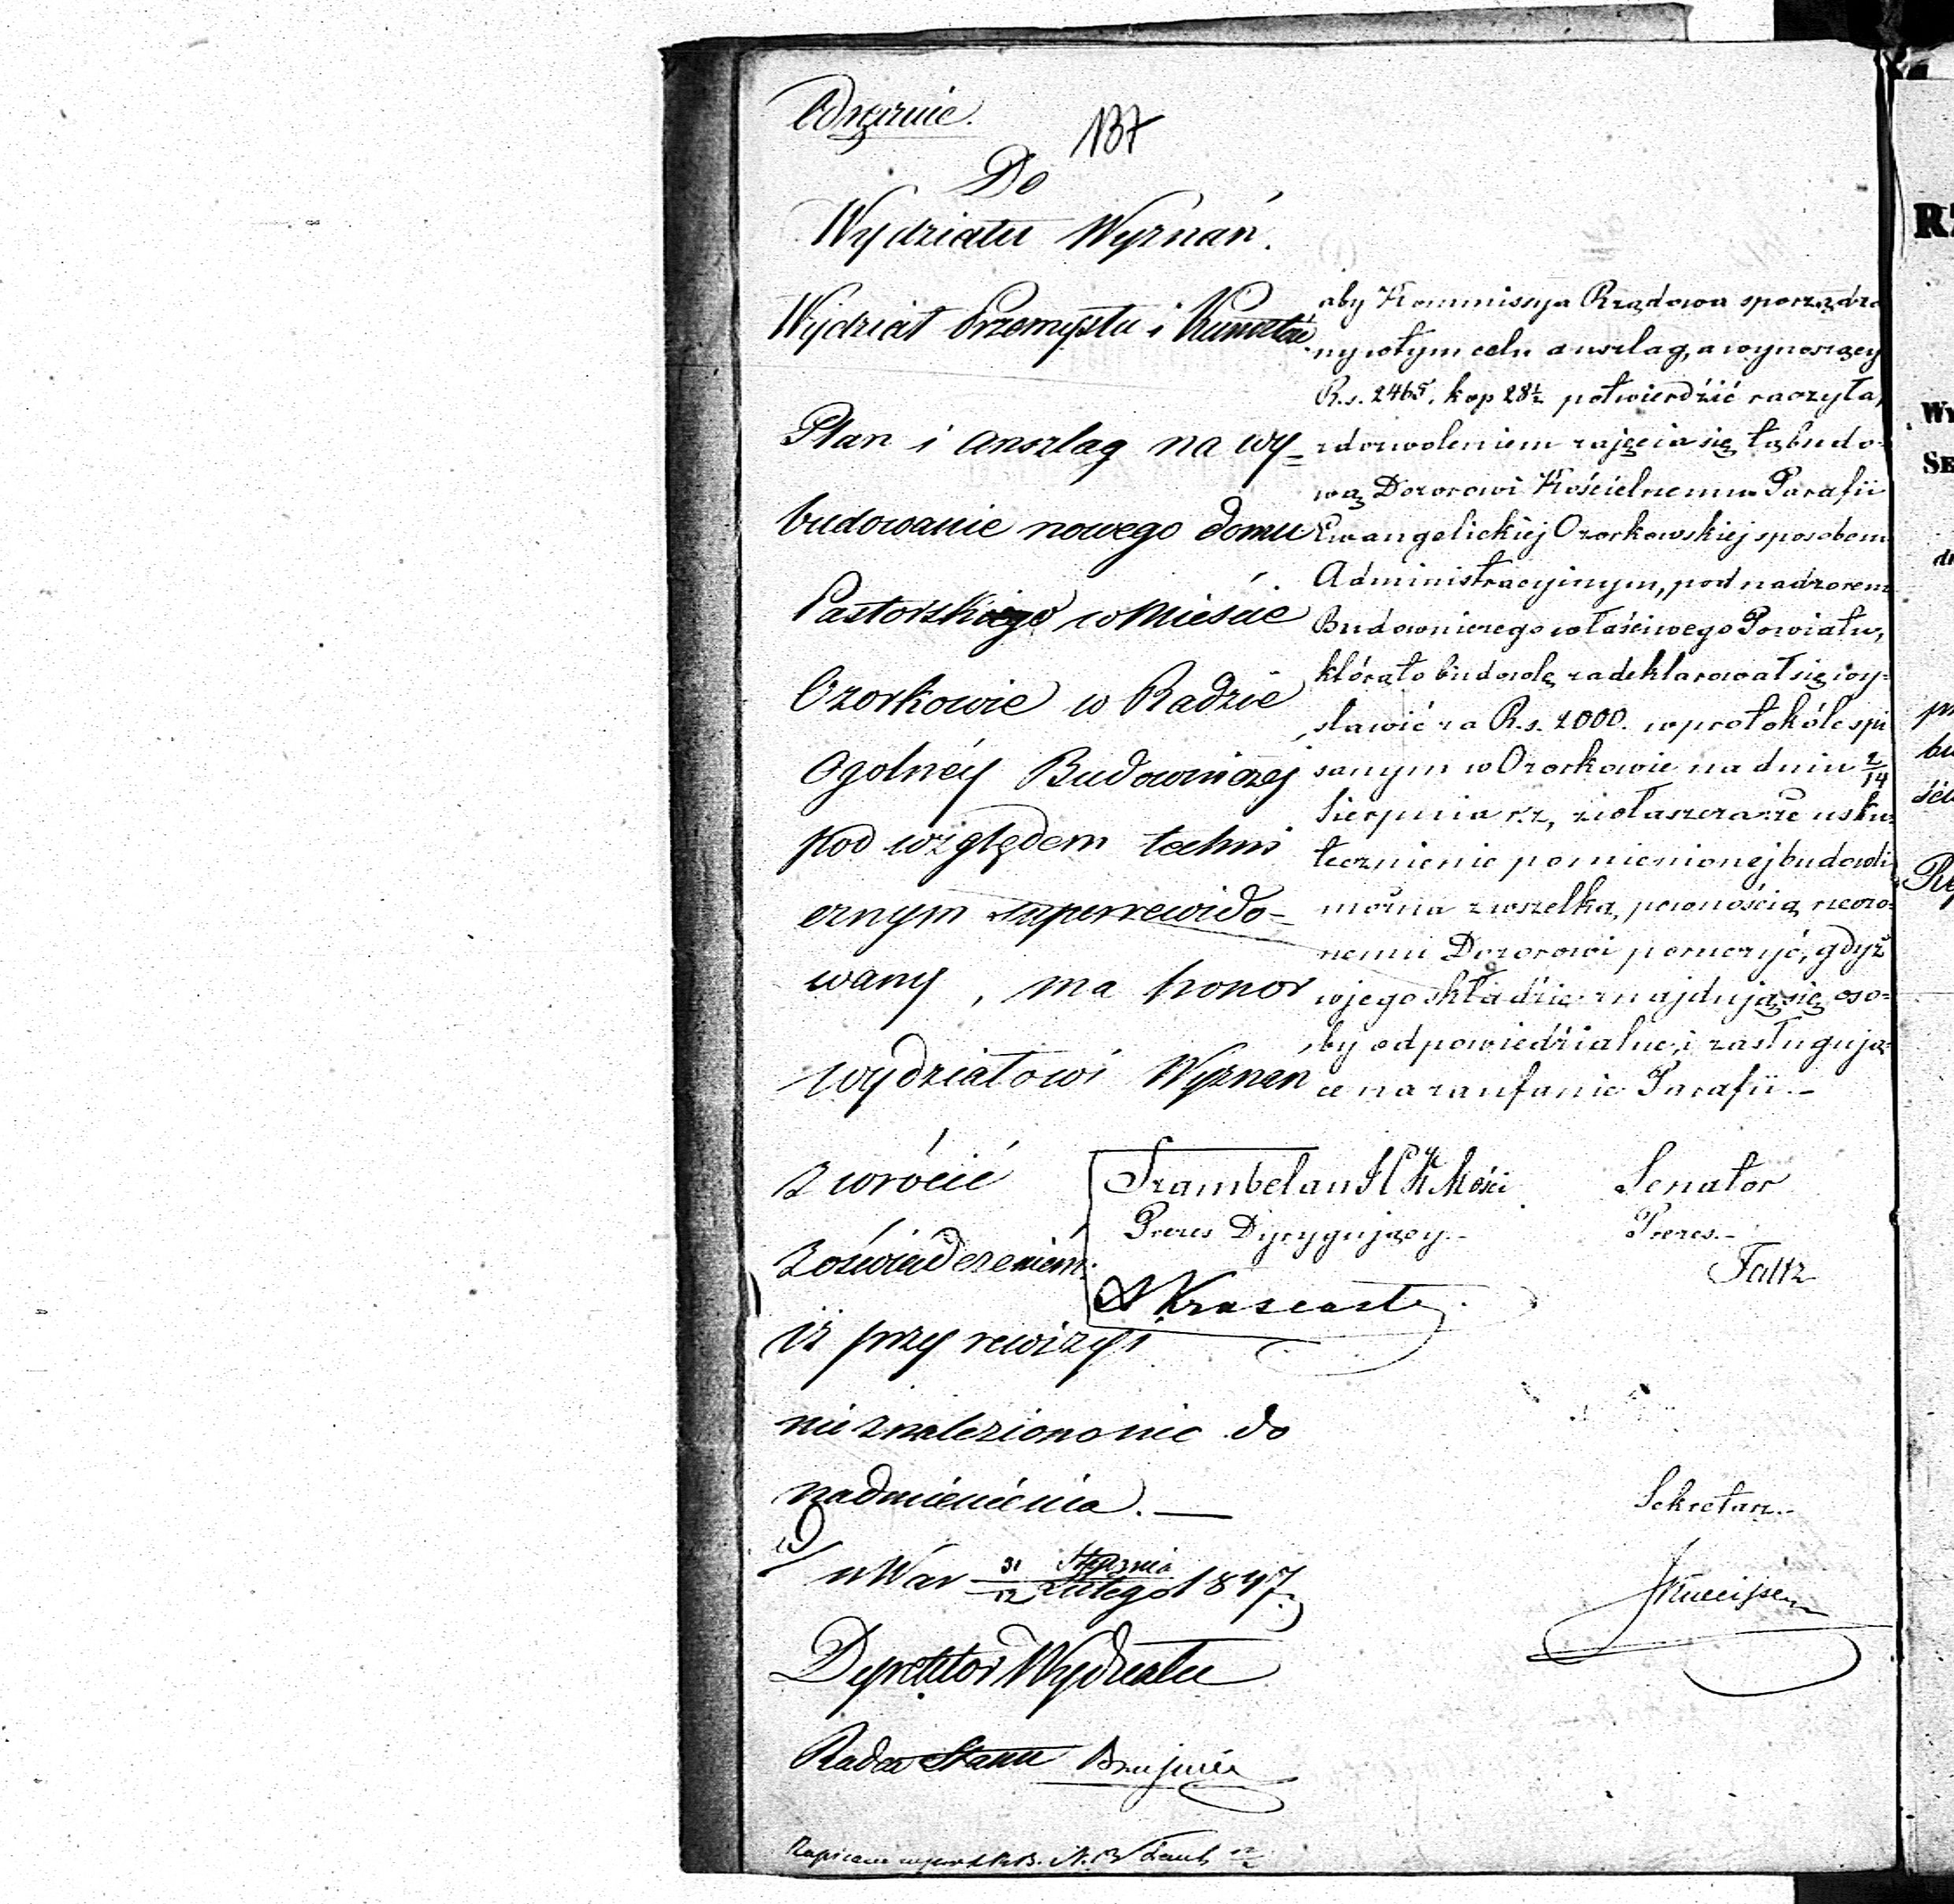 Odręcznie.
137
Do
Wydziału Wyznań.
Wydział Przemysłu i Kunsztów
Plan i anszlag na wy=
budowanie nowego domu
Pastorskiego w Mieście
Ozorkowie w Radzie
Ogolnéy Budowniczej
pod względem techni
cznym superrewido=
wany, ma honor
wydziałowi Wyznań
zwrócić
z oświadczeniem
iż przy rewizyi
nie znaleziono nic do
nadmienienia. —
w War 31 Stycznia
12 Lutego 1847
Dyrektor Wydziału
Radca Stanu
aby Kommissya Rządowa sporządzo
ny w tym celu anszlag, a wynoszący
R.s. 2465, kop 28½ potwierdźić raczyła,
z dozwoleniem zajęcia się tą budo=
wą Dozorowi Kościelnemu Parafii
Ewangelickiej Ozorkowskiej sposobem
Administracyinym, pod nadzorem
Budowniczego właściwego Powiatu,
którą to budowlę zadeklarował się wy=
stawić za R.s. 2000. w protokóle spi
sanym w Ozorkowie na dniu 2/14
Sierpnia r.z, zwłaszcza że usku=
tecznienie pomienionej budowli
można z wszelką pewnością rzeczo=
nemu Dozorowi poruczyć, gdyż
w jego składzie znajdują się oso=
by odpowiedźialne, i zasługują=
ce na zaufanie Parafii.—
Szambelan J K Mości
Prezes Dyrygujący.—
Senator
Prezes.—
Faltz
Sekretarz.—
RZ
WY
SE